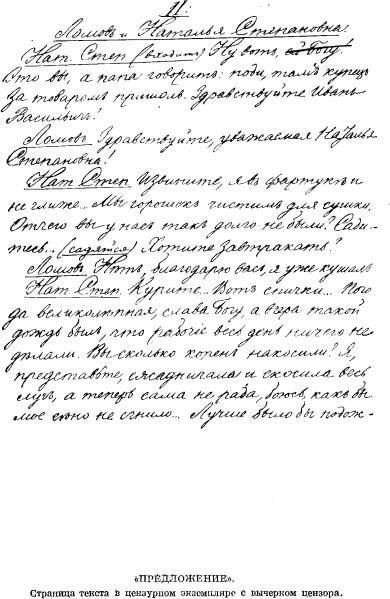 II.
Ломовъ и Наталья Степановна.
Нат. Степ (входитъ) Ну вотъ, ей Богу!
Это вы, а папа говоритъ: поди, тамъ купецъ
за товаромъ пришолъ. Здравствуйте Иванъ
Васильичъ!
Ломовъ Здравствуйте, уважаемая Наталья
Степановна!
Нат Степ Извините, я въ фартукѣ и
неглиже... Мы горошекъ чистимъ для сушки.
Отчего вы у насъ такъ долго не были? Сади-
тесь.. (садятся) Хотите завтракать?
Ломов Нѣтъ, благодарю васъ, я уже кушалъ
Нат Степ. Курите... Вотъ спички... Пого
да великолѣпная, слава Богу, а вчера такой
дождь былъ, что рабочіе весь день ничего не
дѣлали. Вы сколько копенъ накосили? Я,
представьте, сжадничала и скосила весь
лугъ, а теперь сама не рада, боюсь, какъ бы
мое сѣно не сгнило... Лучше было бы подож-
«ПРЕДЛОЖЕНИЕ».
Страница текста в цензурном экземпляре с вычерком цензора.